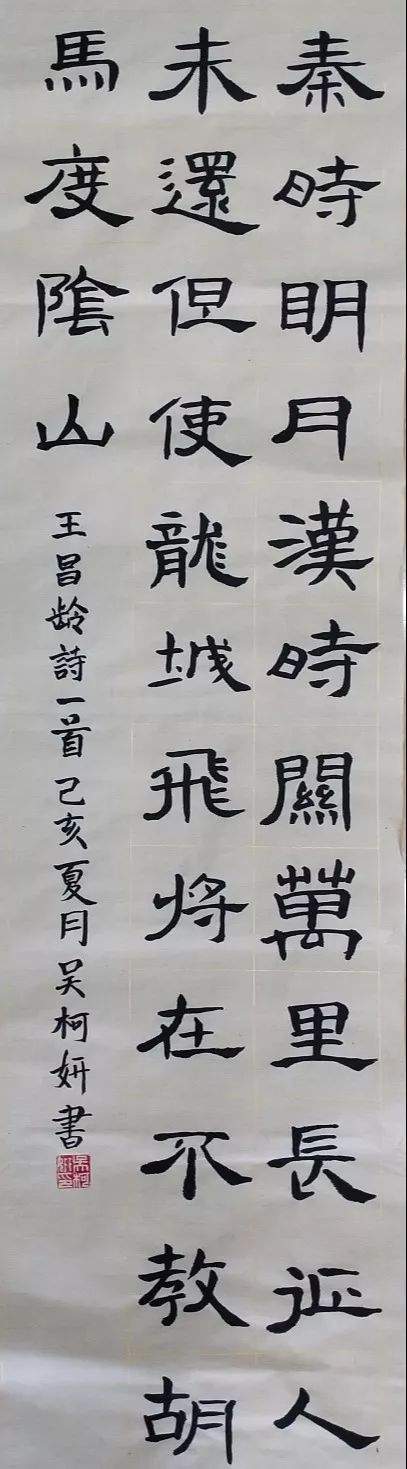 秦時明月漢時關萬里長征人
未還但使龍城飛将在不教胡
馬度陰山
王昌龄詩一首己亥夏月吴柯妍書
吴柯妍印